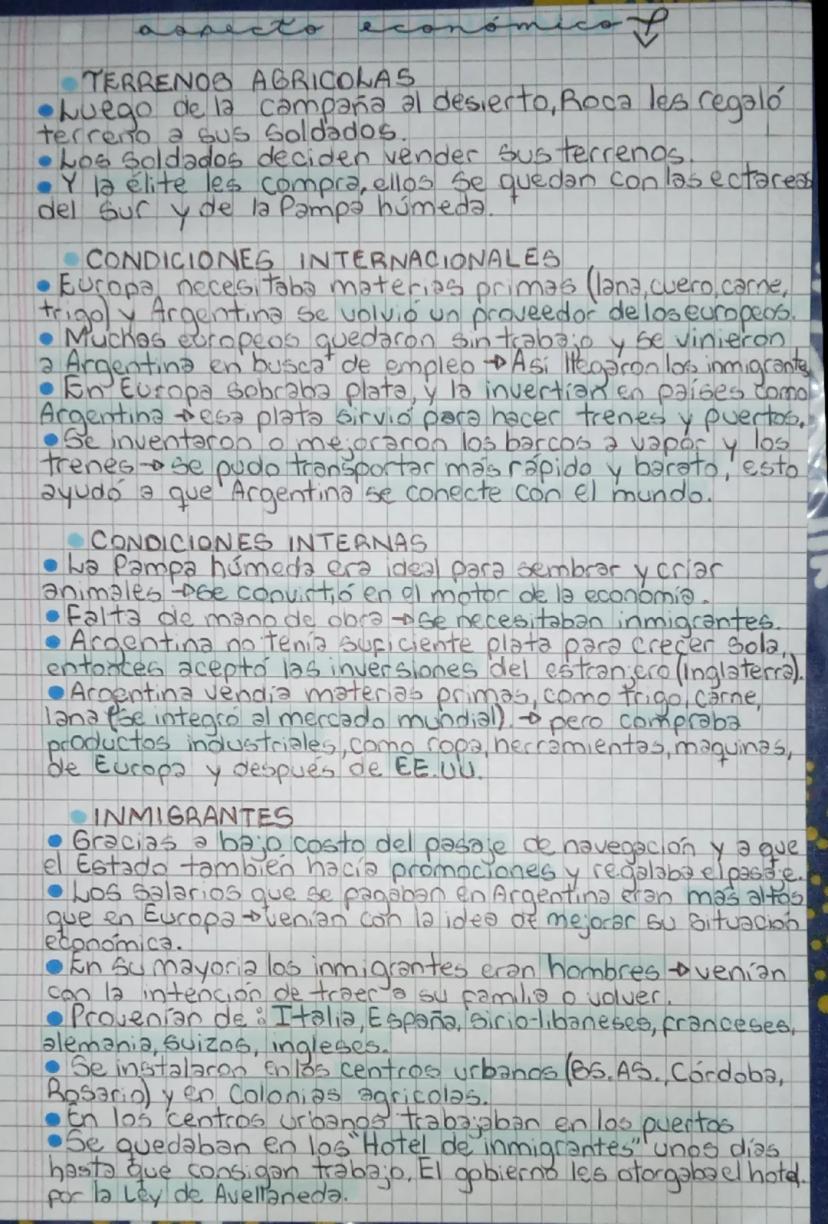 aspecto económico
• TERRENOS AGRICOLAS
• Luego de la campaña al desierto, Roca les regaló
terreno a sus soldados.
• Los soldados deciden vender sus terrenos.
• Y la élite les compra, ellos se quedan con las ectareas
del sur y de la Pampa húmeda.
• CONDICIONES INTERNACIONALES
• Europa necesitaba materias primas (lana, cuero, carne,
trigo) y Argentina se volvió un proveedor de los europeos.
• Muchos europeos quedaron sin trabajo y se vinieron
a Argentina en busca de empleo → Asi llegaron los inmigrantes
• En Europa sobraba plata, y la invertian en países como
Argentina → esa plata sirvió para hacer trenes y puertos.
• Se inventaron o mejoraron los barcos a vapor y los
trenes → se pudo transportar más rápido y barato, esto
ayudó a que Argentina se conecte con el mundo.
• CONDICIONES INTERNAS
• La Pampa húmeda era ideal para sembrar y criar
animales → se convirtió en el motor de la economía.
• Falta de mano de obra → se necesitaban inmigrantes.
• Argentina no tenía suficiente plata para crecer sola,
entonces aceptó las inversiones del estranjero (Inglaterra).
• Argentina vendía materias primas, como trigo, carne,
lana (se integró al mercado mundial) → pero compraba
productos industriales, como ropa, herramientas, maquinas,
de Europa y después de EE.UU.
• INMIGRANTES
• Gracias a bajo costo del pasaje de navegación y a que
el Estado también hacía promociones y regalaba el pasaje.
• Los salarios que se pagaban en Argentina eran más altos
que en Europa → venían con la idea de mejorar su situación
económica.
• En su mayoría los inmigrantes eran hombres → venían
con la intención de traer a su familia o volver.
• Provenían de: Italia, España, sirio-libaneses, franceses,
alemania, suizos, ingleses.
• Se instalaron en los centros urbanos (BS.AS., Córdoba,
Rosario) y en colonias agricolas.
• En los centros urbanos trabajaban en los puertos
• Se quedaban en los "Hotel de inmigrantes" unos días
hasta que consigan trabajo, El gobierno les otorgaba el hotel
por la Ley de Avellaneda.